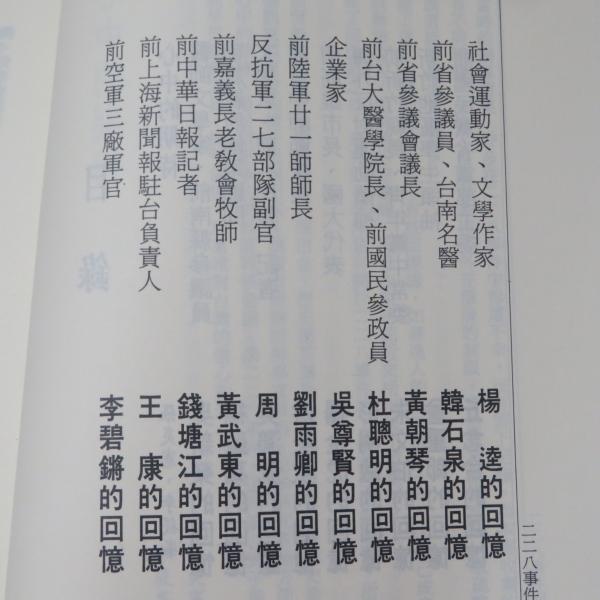 社會運動家、文學作家 楊 逵的回憶
前省參議員、台南名醫 韓石泉的回憶
前省參議會議長 黃朝琴的回憶
前台大醫學院長、前國民參政員 杜聰明的回憶
企業家 吳尊賢的回憶
前陸軍廿一師師長 劉雨卿的回憶
反抗軍二七部隊副官 周 明的回憶
前嘉義長老教會牧師 黃武東的回憶
前中華日報記者 錢塘江的回憶
前上海新聞報駐台負責人 王 康的回憶
前空軍三廠軍官 李碧鏘的回憶
二二八事件
目錄